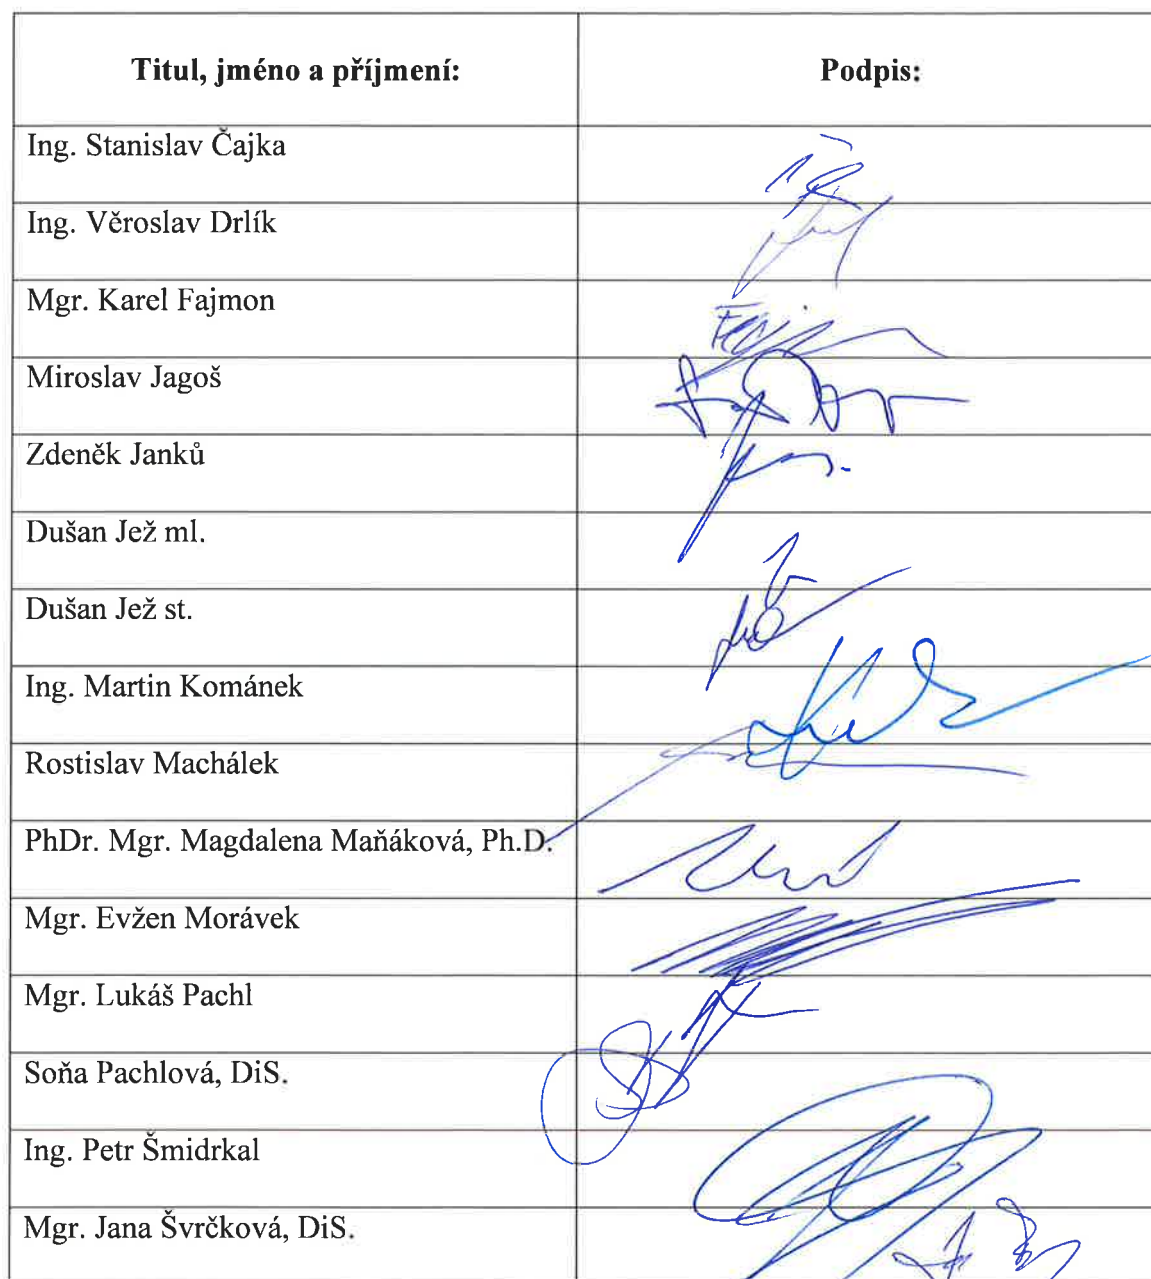 Titul, jméno a příjmení: Podpis:
Ing. Stanislav Čajka
Ing. Věroslav Drlík
Mgr. Karel Fajmon
Miroslav Jagoš
Zdeněk Janků
Dušan Jež ml.
Dušan Jež st.
Ing. Martin Kománek
Rostislav Machálek
PhDr. Mgr. Magdalena Maňáková, Ph.D.
Mgr. Evžen Morávek
Mgr. Lukáš Pachl
Soňa Pachlová, DiS.
Ing. Petr Šmidrkal
Mgr. Jana Švrčková, DiS.